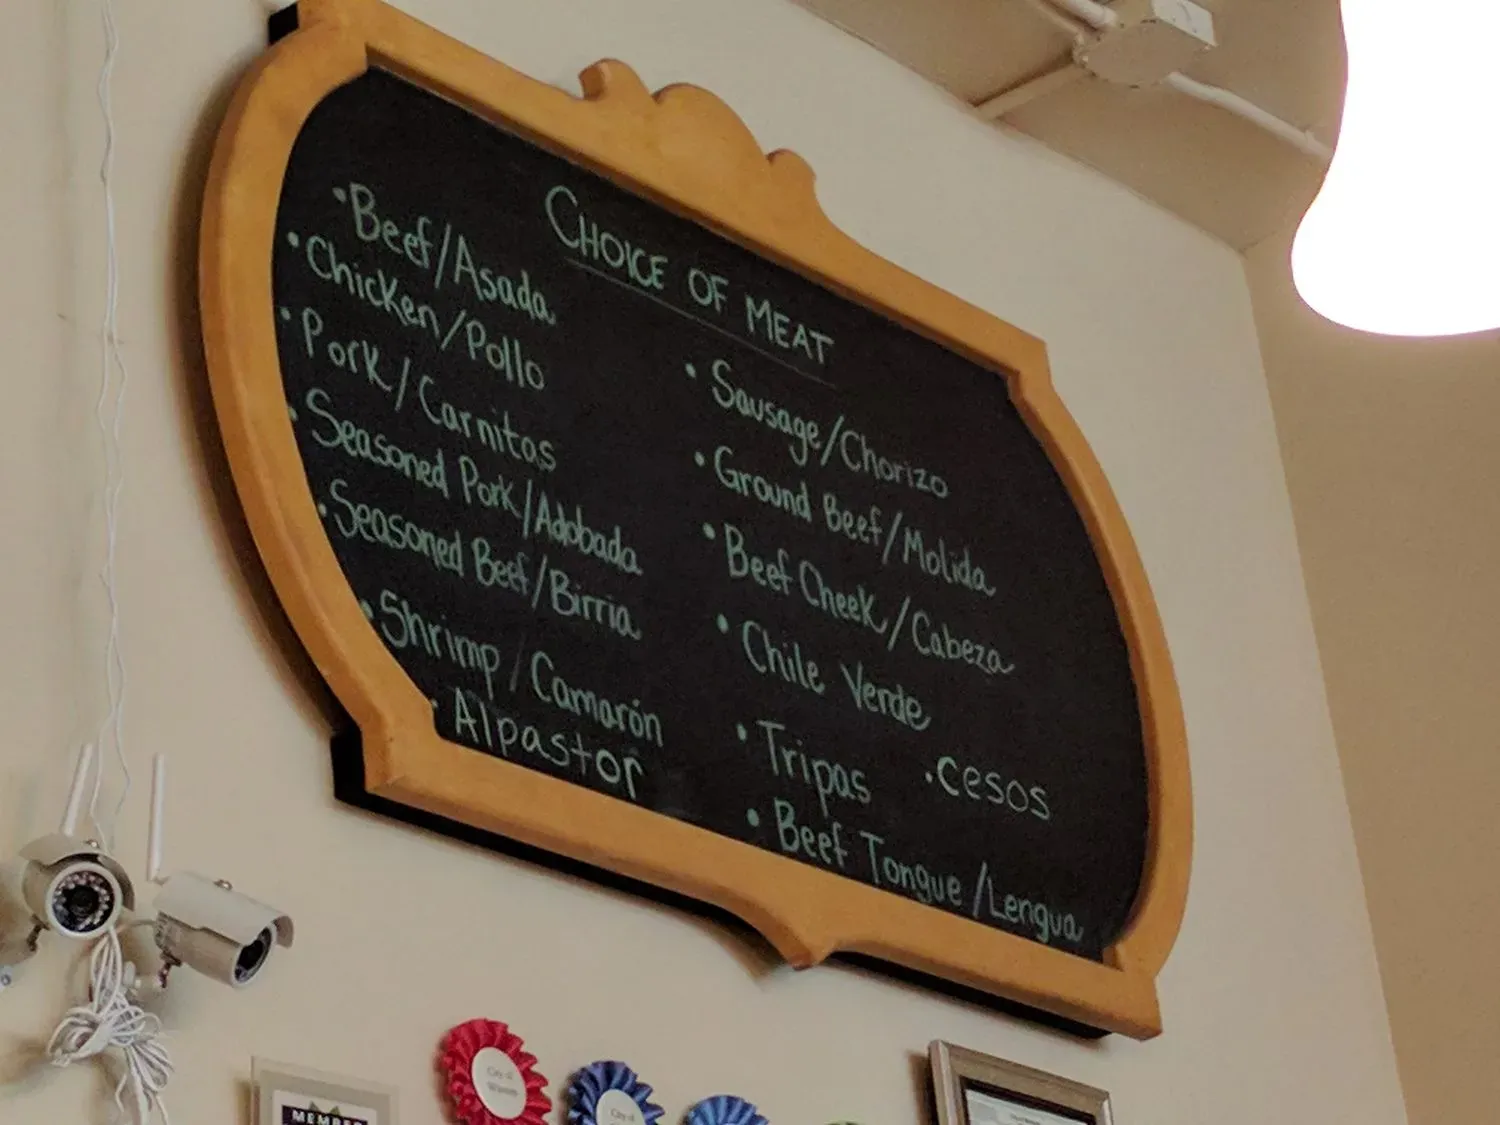 CHOICE OF MEAT
• Beef/Asada
• Chicken/Pollo
• Pork/Carnitas
• Seasoned Pork/Adobada
• Seasoned Beef/Birria
• Shrimp/Camarón
• Alpastor
• Sausage/Chorizo
• Ground Beef/Molida
• Beef Cheek/Cabeza
• Chile Verde
• Tripas
.cesos
• Beef Tongue/Lengua
MEMBER
City of
City of